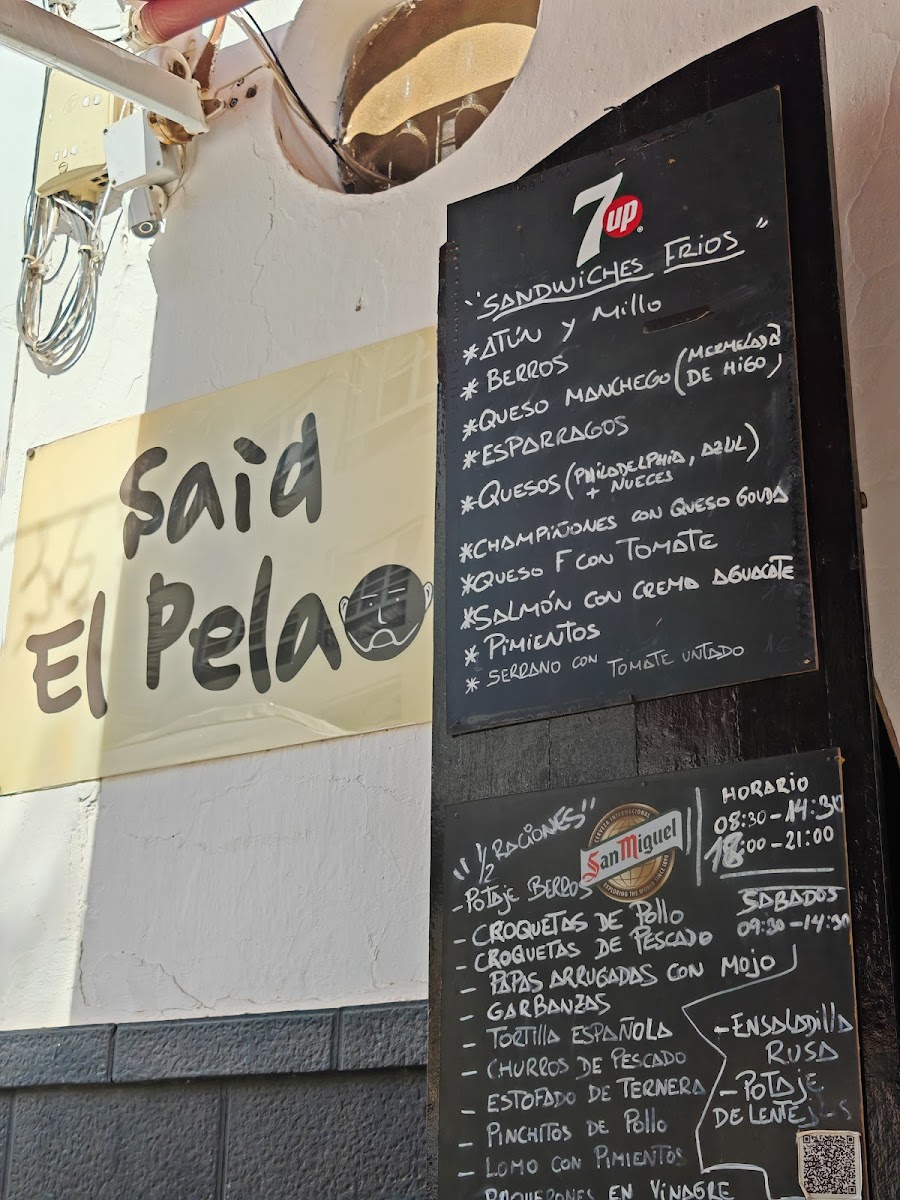 Saìd
El Pelao
7up
"SANDWICHES FRIOS"
*ATÚN y Millo
*BERROS
*QUESO MANCHEGO (MERMELADA DE HIGO)
*ESPARRAGOS
*QUESOS (PHILADELPHIA, AZUL) + NUECES
*CHAMPIÑONES con QUESO GOUDA
*QUESO F CON TOMATE
*SALMÓN CON CREMA AGUACATE
*PIMIENTOS
*SERRANO CON TOMATE UNTADO
"1/2 RACIONES"
CERVEZA INTERNACIONAL
San Miguel
EXPLORING THE WORLD SINCE 1890
HORARIO
08:30-14:30
18:00-21:00
SABADOS
09:30-14:30
-POTAJE BERROS
- CROQUETAS DE POLLO
- CROQUETAS DE PESCADO
- PAPAS ARRUGADAS CON MOJO
- GARBANZAS
- TORTILLA ESPAÑOLA
- CHURROS DE PESCADO
- ESTOFADO DE TERNERA
- PINCHITOS DE POLLO
- LOMO CON PIMIENTOS
BOQUERONES EN VINAGRE
-ENSALADILLA RUSA
-POTAJE DE LENTEJAS